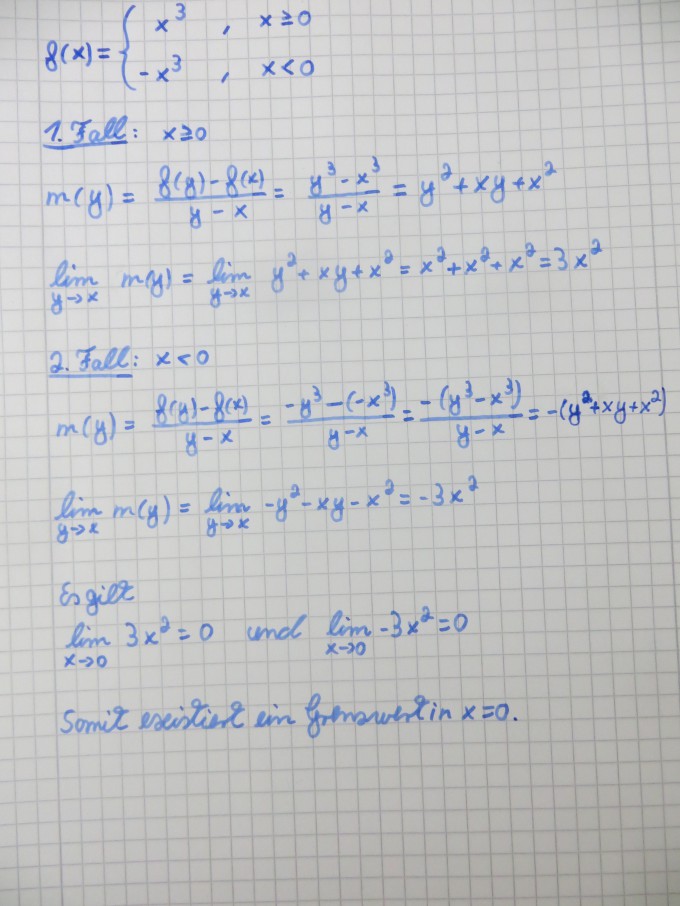 f(x) = { x³ , x ≥ 0
-x³ , x < 0
1. Fall: x ≥ 0
m(y) = (f(y) - f(x))/(y - x) = (y³ - x³)/(y - x) = y² + xy + x²
lim_{y→x} m(y) = lim_{y→x} y² + xy + x² = x² + x² + x² = 3x²
2. Fall: x < 0
m(y) = (f(y) - f(x))/(y - x) = (-y³ - (-x³))/(y - x) = (-(y³ - x³))/(y - x) = -(y² + xy + x²)
lim_{y→x} m(y) = lim_{y→x} -y² - xy - x² = -3x²
Es gilt
lim_{x→0} 3x² = 0 und lim_{x→0} -3x² = 0
Somit existiert ein Grenzwert in x = 0.